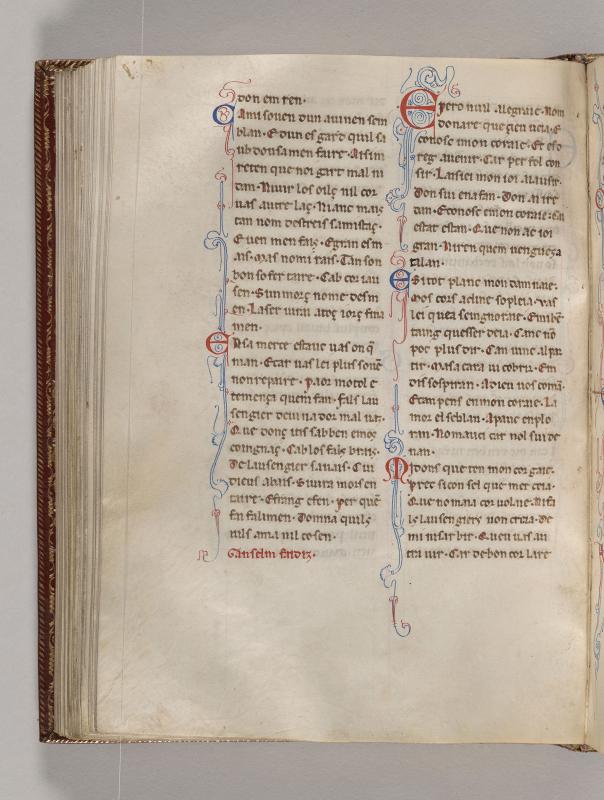 don em ren·
Ami souen dun auinen sem
blan· E dun esgard quil sa
ub dousamen faire· Aisim
reten que noi gart mal ni
dan·
uas autre laç· Ni anc mais
tan nom destreis samistaç·
E uen men faiz· E gran esm
ais· Mas nomi rais· Tan son
bon sofertaire· Cab cor iau
sen· Sim nome desin
en· Laser uirai atoç iorç fina
men·
En sa merce estauc uas on q̃
man· Et ar uas lei plus souẽ
non repaire· Paor motol e
temença quem fan· Fals lau
sengier deuinador mal
Que donç itis sabben emoç
coingnaç· Cab los fals brais·
De lausengier sauais· Cui
dieus abais· Siuira mois en
taire· E frang e fen· per quẽ
fan falimen· Domna quils
uils ama nil cosen·
Ganselm faidiz·
Espero nuil alegraie· Nom
donaire que gien ueia· E
conose imon coraie· Et eso
reg auenir· Car per fol con
sir· Laisiei mon ioi alausir·
Don sui enafan· Don aire
dan· E conose em on coraie· En
estat estan· Que non ac ioi
gran· Ni ren quem uengueza
talan·
Si tot planc mon damnaie·
Mos cors acline sopleia· Vas
lei quea seingnoraie· Em bẽ
taing quesser deia· Canc nõ
poc plus dir· Can uinc al par
tir· Masa cara ui cobrir· Em
dis sospiran· A dieu uos comã·
Et can pens en mon coraie· La
mor el seblan· A pauc en plo
ran· Nom auci car nol sui de
nan·
Midons que ten mon cor gaie·
Prec si con sel que mercia·
Que no maia cor uolue· Ni fa
ls lausengiers non creia· De
mi ni sarbir· Quen uas au
tra uir· Car de bon cor lare